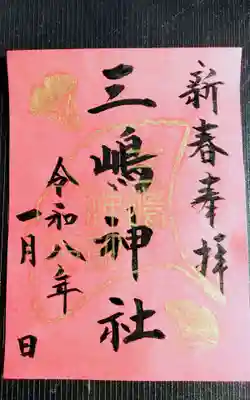 新春奉拝
三嶋神社
令和八年
一月 日